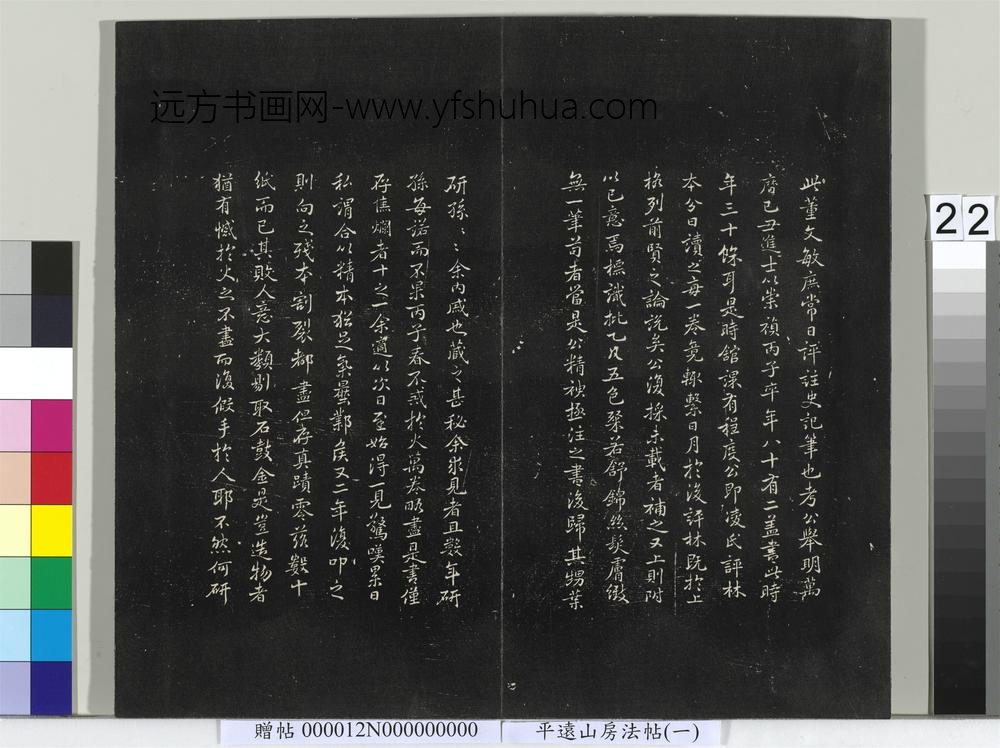 远方书画网-www.yfshuhua.com
此董文敏庶常日評註史記筆也考公舉明萬
曆已丑進士以崇禎丙子卒年八十有二蓋書此時
年三十餘耳是時館課有程度公即凌氏評林
本分日讀之每一卷竟輒繫日月於後評林既於上
格列前賢之論說矣公復採未載者補之又上則附
以己意焉標識批乙凡五色粲若舒錦絲髮膚緻
無一筆苟者當是公精神極注之書後歸其甥葉
研孫〻〻余內戚也藏之甚秘余求見者且數年研
孫每諾而不果丙子春不戒於火萬卷略盡是書僅
存焦爛者十之一余適以次日至始得一見驚嘆累日
私謂合以精本猶足氣壓鄴侯又二年復叩之
則向之殘本割裂都盡但存真蹟零殘數十
紙而已其敗人意大類剔取石鼓金是豈造物者
猶有憾於火之不盡而復假手於人耶不然何研
22
贈帖 000012N000000000
平遠山房法帖(一)